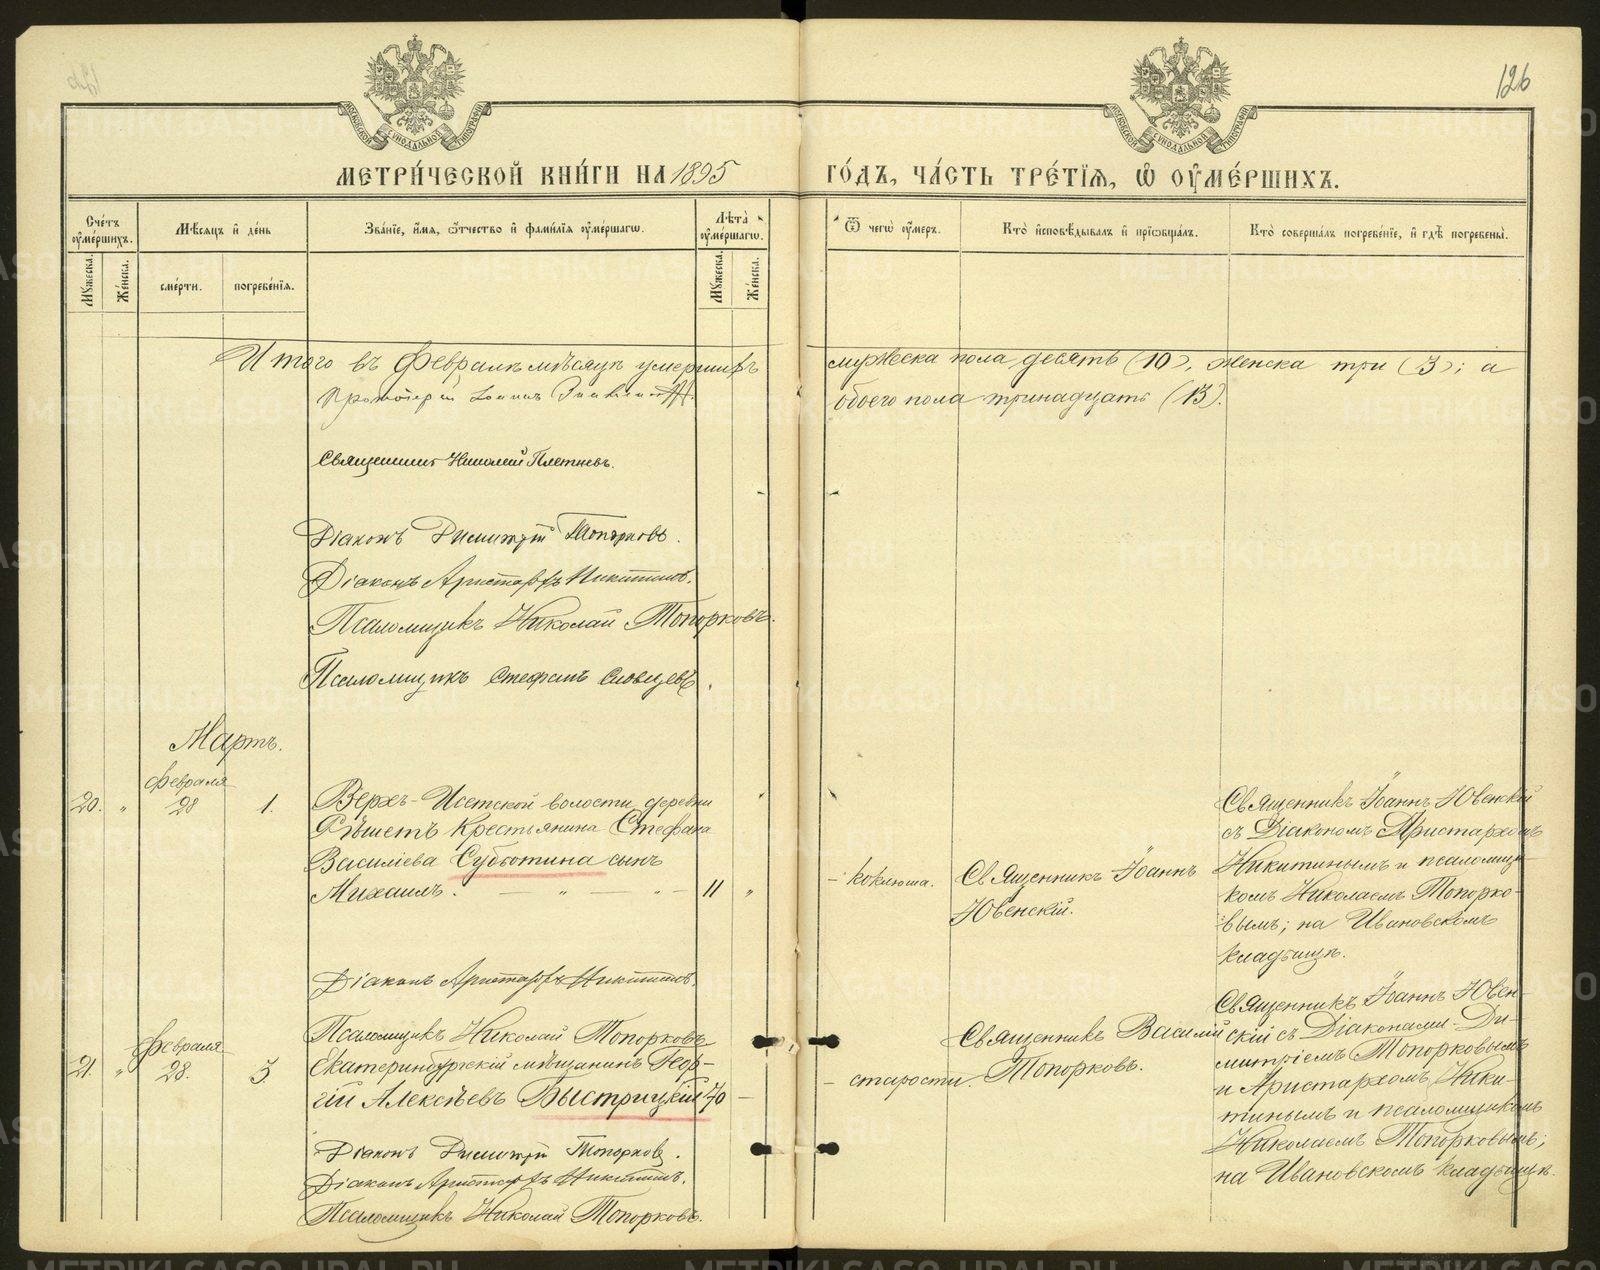 126
МЕТРИ́ЧЕСКОЙ КНИ́ГИ НА 1895 ГО́ДЪ, ЧА́СТЬ ТРЕ́ТІѦ, Ѡ҆ ОУ҆МЕ́РШИХЪ.
Сче́тъ оу҆ме́ршихъ.
Мѣ́сяцъ и҆ де́нь
Зва́нїе, и҆́мѧ, ѻ҆́тчество и҆ фами́лїѧ оу҆ме́ршагѡ.
Лѣ́та оу҆ме́ршагѡ.
Ѿ чегѡ̀ оу҆́меръ.
Кто̀ и҆сповѣ́дывалъ и҆ прїѡбща́лъ.
Кто̀ соверша́лъ погребе́нїе, и҆ гдѣ̀ погребены̀.
Мꙋ́жеска.
Же́нска.
сме́рти.
погребе́нїѧ.
Мꙋ́жеска.
Же́нска.
Итого въ Февралѣ мѣсяцѣ умершихъ мужеска пола десять (10), женска три (3); а
обоего пола тринадцать (13).
Протоіерей Іоаннъ
Священникъ Николай Плетневъ.
Діаконъ Димитрій Топорковъ.
Діаконъ Аристархъ Никитинъ.
Псаломщикъ Николай Топорковъ.
Псаломщикъ Стефанъ Словцевъ.
Мартъ.
Февраля
20. " 28 1.
Верхъ-Исетской волости деревни
Рѣшетъ крестьянина Стефана
Василіева Субботина сынъ
Михаилъ. — " — " — 11 "
- коклюша.
Священникъ Іоаннъ
Ювенскій.
Священникъ Іоаннъ Ювенскій
съ Діакономъ Аристархомъ
Никитинымъ и псаломщи-
комъ Николаемъ Топорко-
вымъ; на Ивановскомъ
кладбищѣ.
Діаконъ Аристархъ Никитинъ.
Псаломщикъ Николай Топорковъ
Февраля
21. " 28. 3
Екатеринбургскій мѣщанинъ Геор-
гій Алексѣевъ Быстрицкій 70 —
- старости.
Священникъ Василій
Топорковъ.
Священникъ Іоаннъ Ювен-
скій съ Діаконами Ди-
митріемъ Топорковымъ
и Аристархомъ Ники-
тинымъ и псаломщикомъ
Николаемъ Топорковымъ;
на Ивановскомъ кладбищѣ.
Діаконъ Димитрій Топорковъ.
Діаконъ Аристархъ Никитинъ.
Псаломщикъ Николай Топорковъ.
METRIKI.GASO-URAL.RU